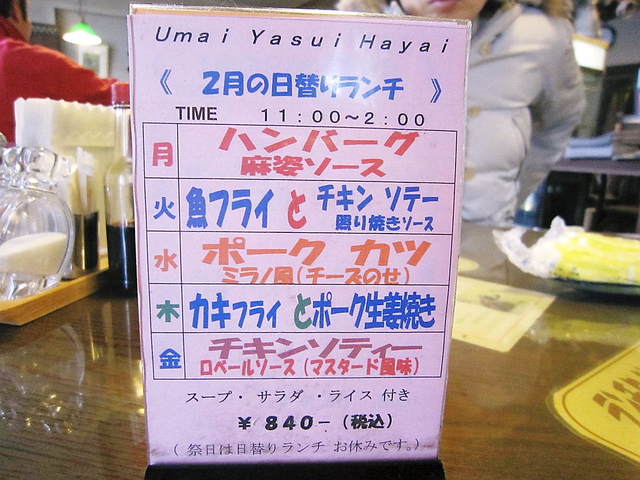 Umai Yasui Hayai
《 2月の日替りランチ 》
TIME 11:00～2:00
月 ハンバーグ
麻姿ソース
火 魚フライ と チキン ソテー
照り焼きソース
水 ポーク カツ
ミラノ風(チーズのせ)
木 カキフライ とポーク生姜焼き
金 チキンソティー
ロベールソース (マスタード風味)
スープ・ サラダ ・ライス 付き
¥ 840- (税込)
( 祭日は日替りランチ お休みです。)